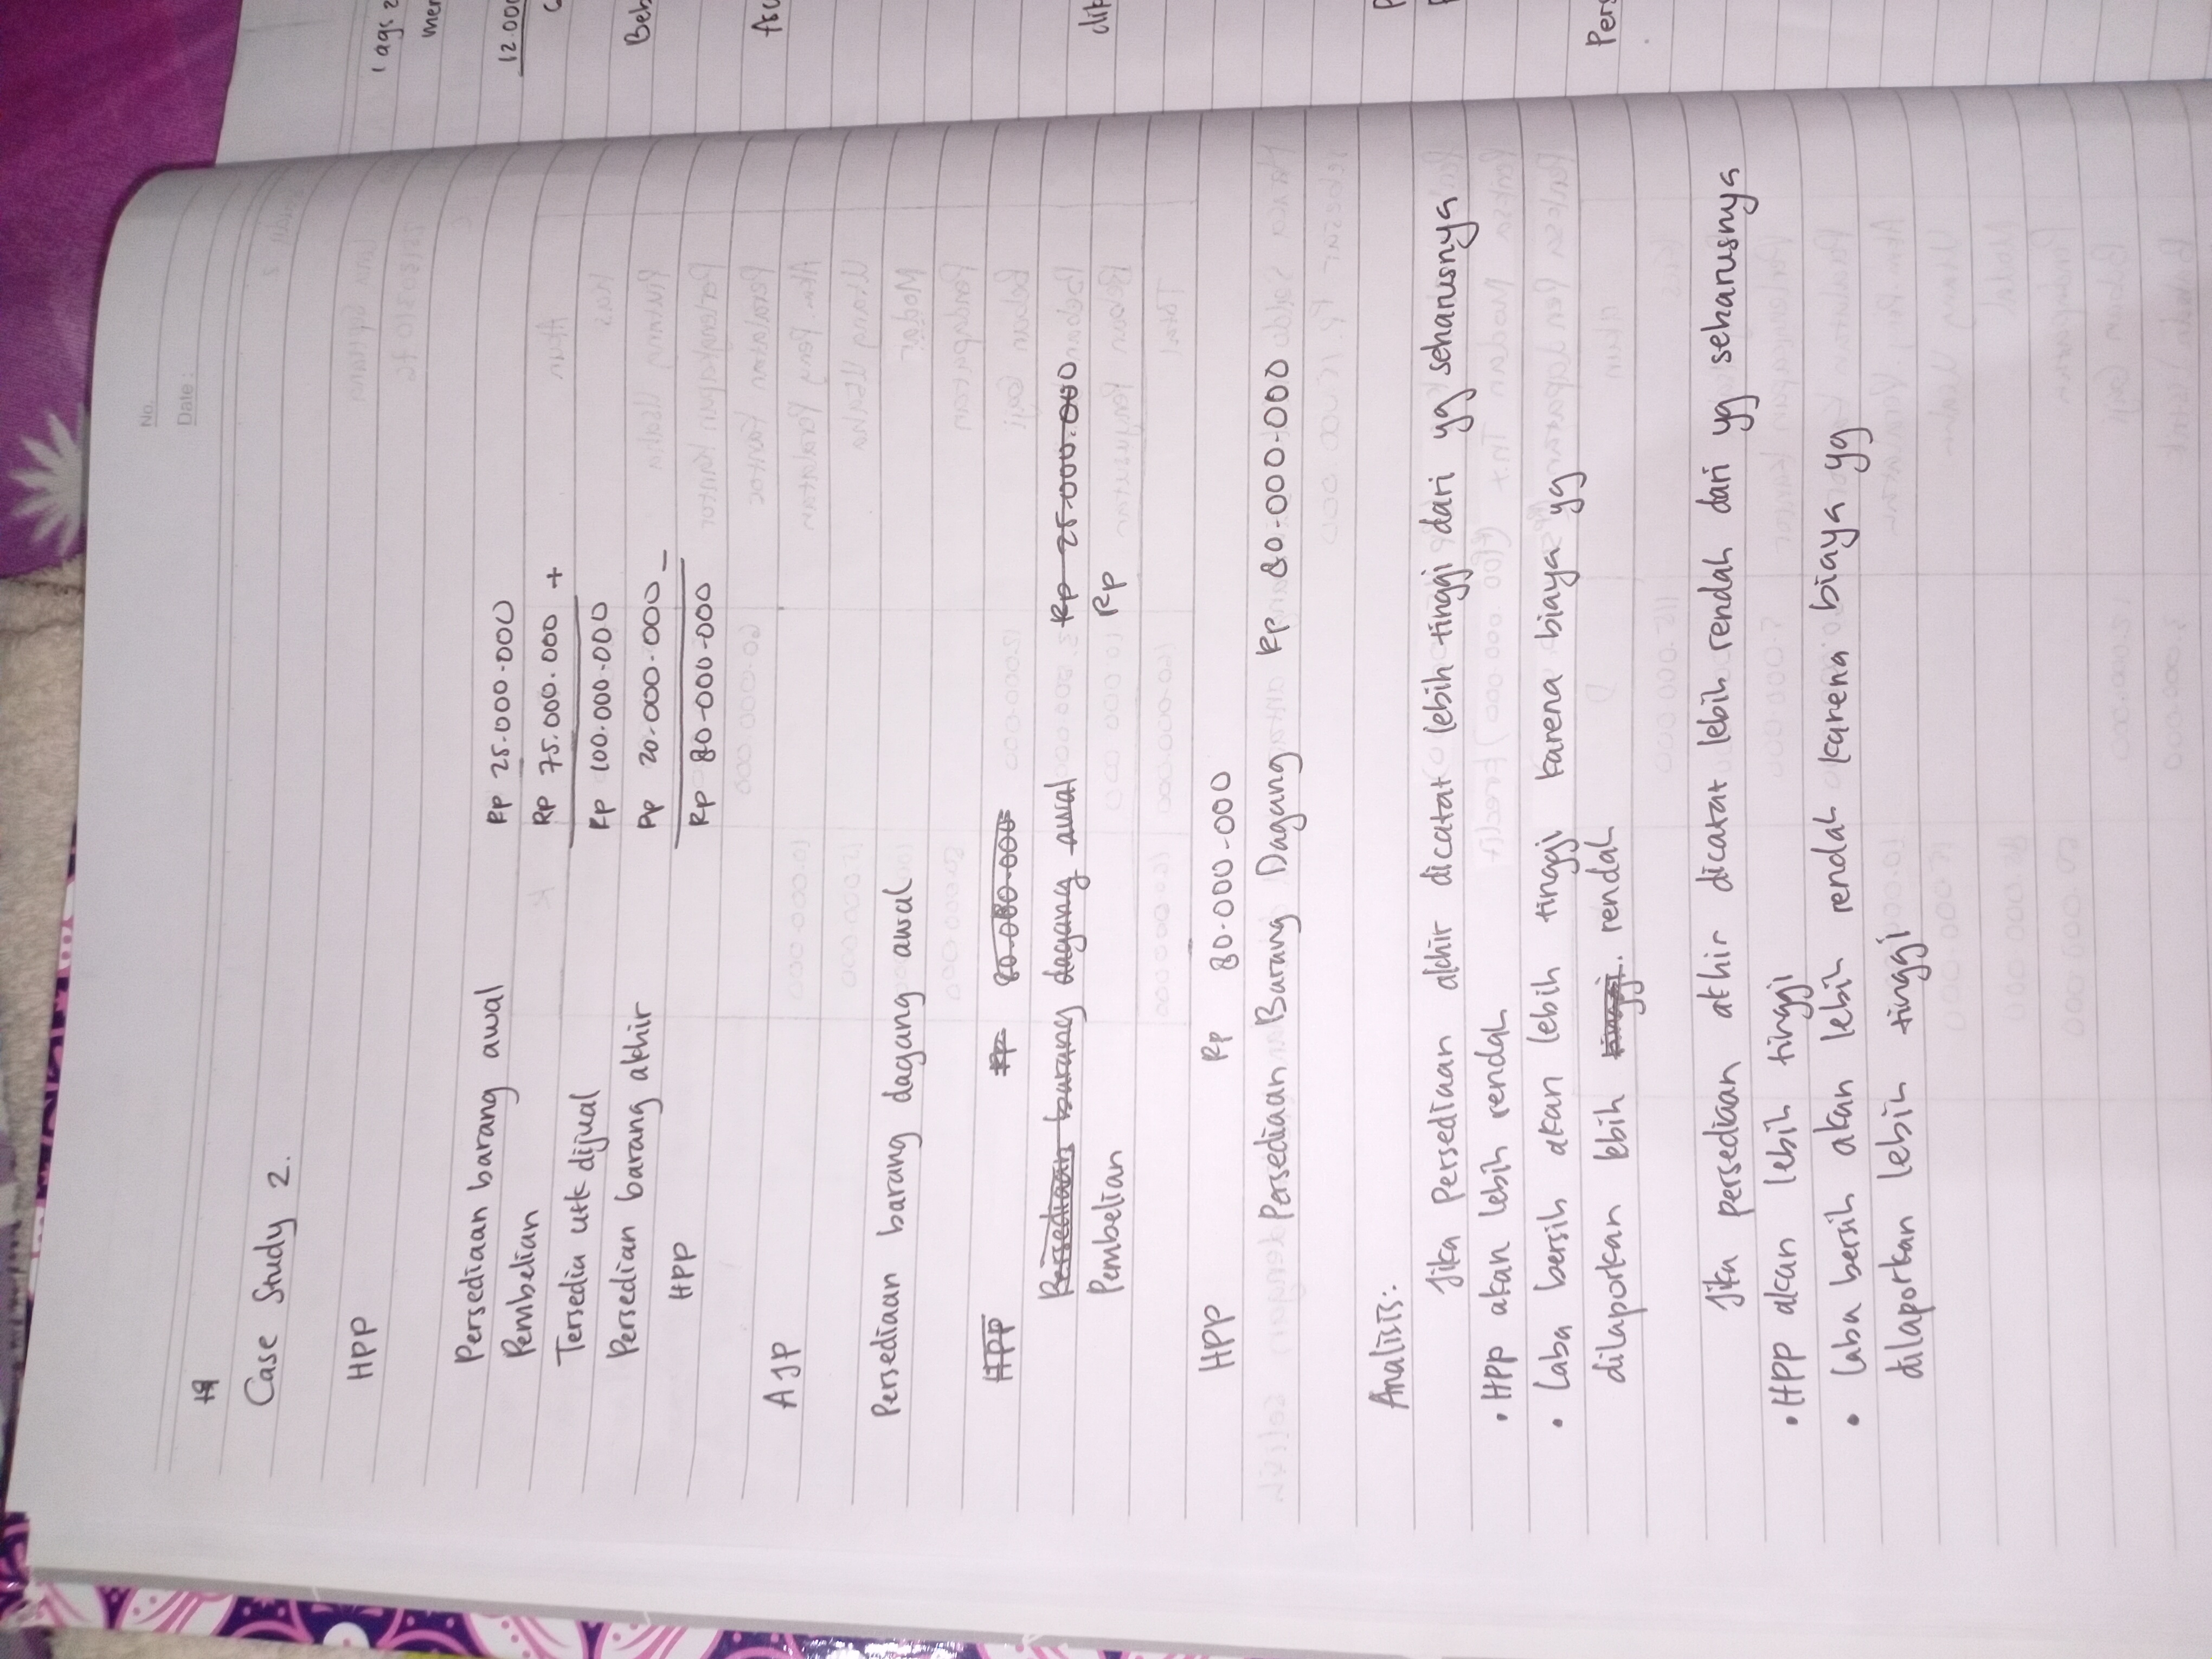 No.
Date :
Case Study 2.
HPP
Persediaan barang awal Rp 25.000.000
Pembelian Rp 75.000.000 +
Tersedia utk dijual Rp 100.000.000
Persedian barang akhir Rp 20.000.000 _
HPP Rp 80.000.000
AJP
Persediaan barang dagang awal
HPP Rp 80.000.000
Persediaan barang dagang awal Rp 25.000.000
Pembelian Rp
HPP Rp 80.000.000
Persediaan Barang Dagang Rp 80.000.000
Analisis:
Jika Persediaan akhir dicatat lebih tinggi dari yg seharusnya
• HPP akan lebih rendah
• Laba bersih akan lebih tinggi karena biaya yg
dilaporkan lebih tinggi. rendah
Jika persediaan akhir dicatat lebih rendah dari yg seharusnya
• HPP akan lebih tinggi
• Laba bersih akan lebih rendah karena biaya yg
dilaporkan lebih tinggi
1 ags
mer
12.000
Beb
dik
Pers